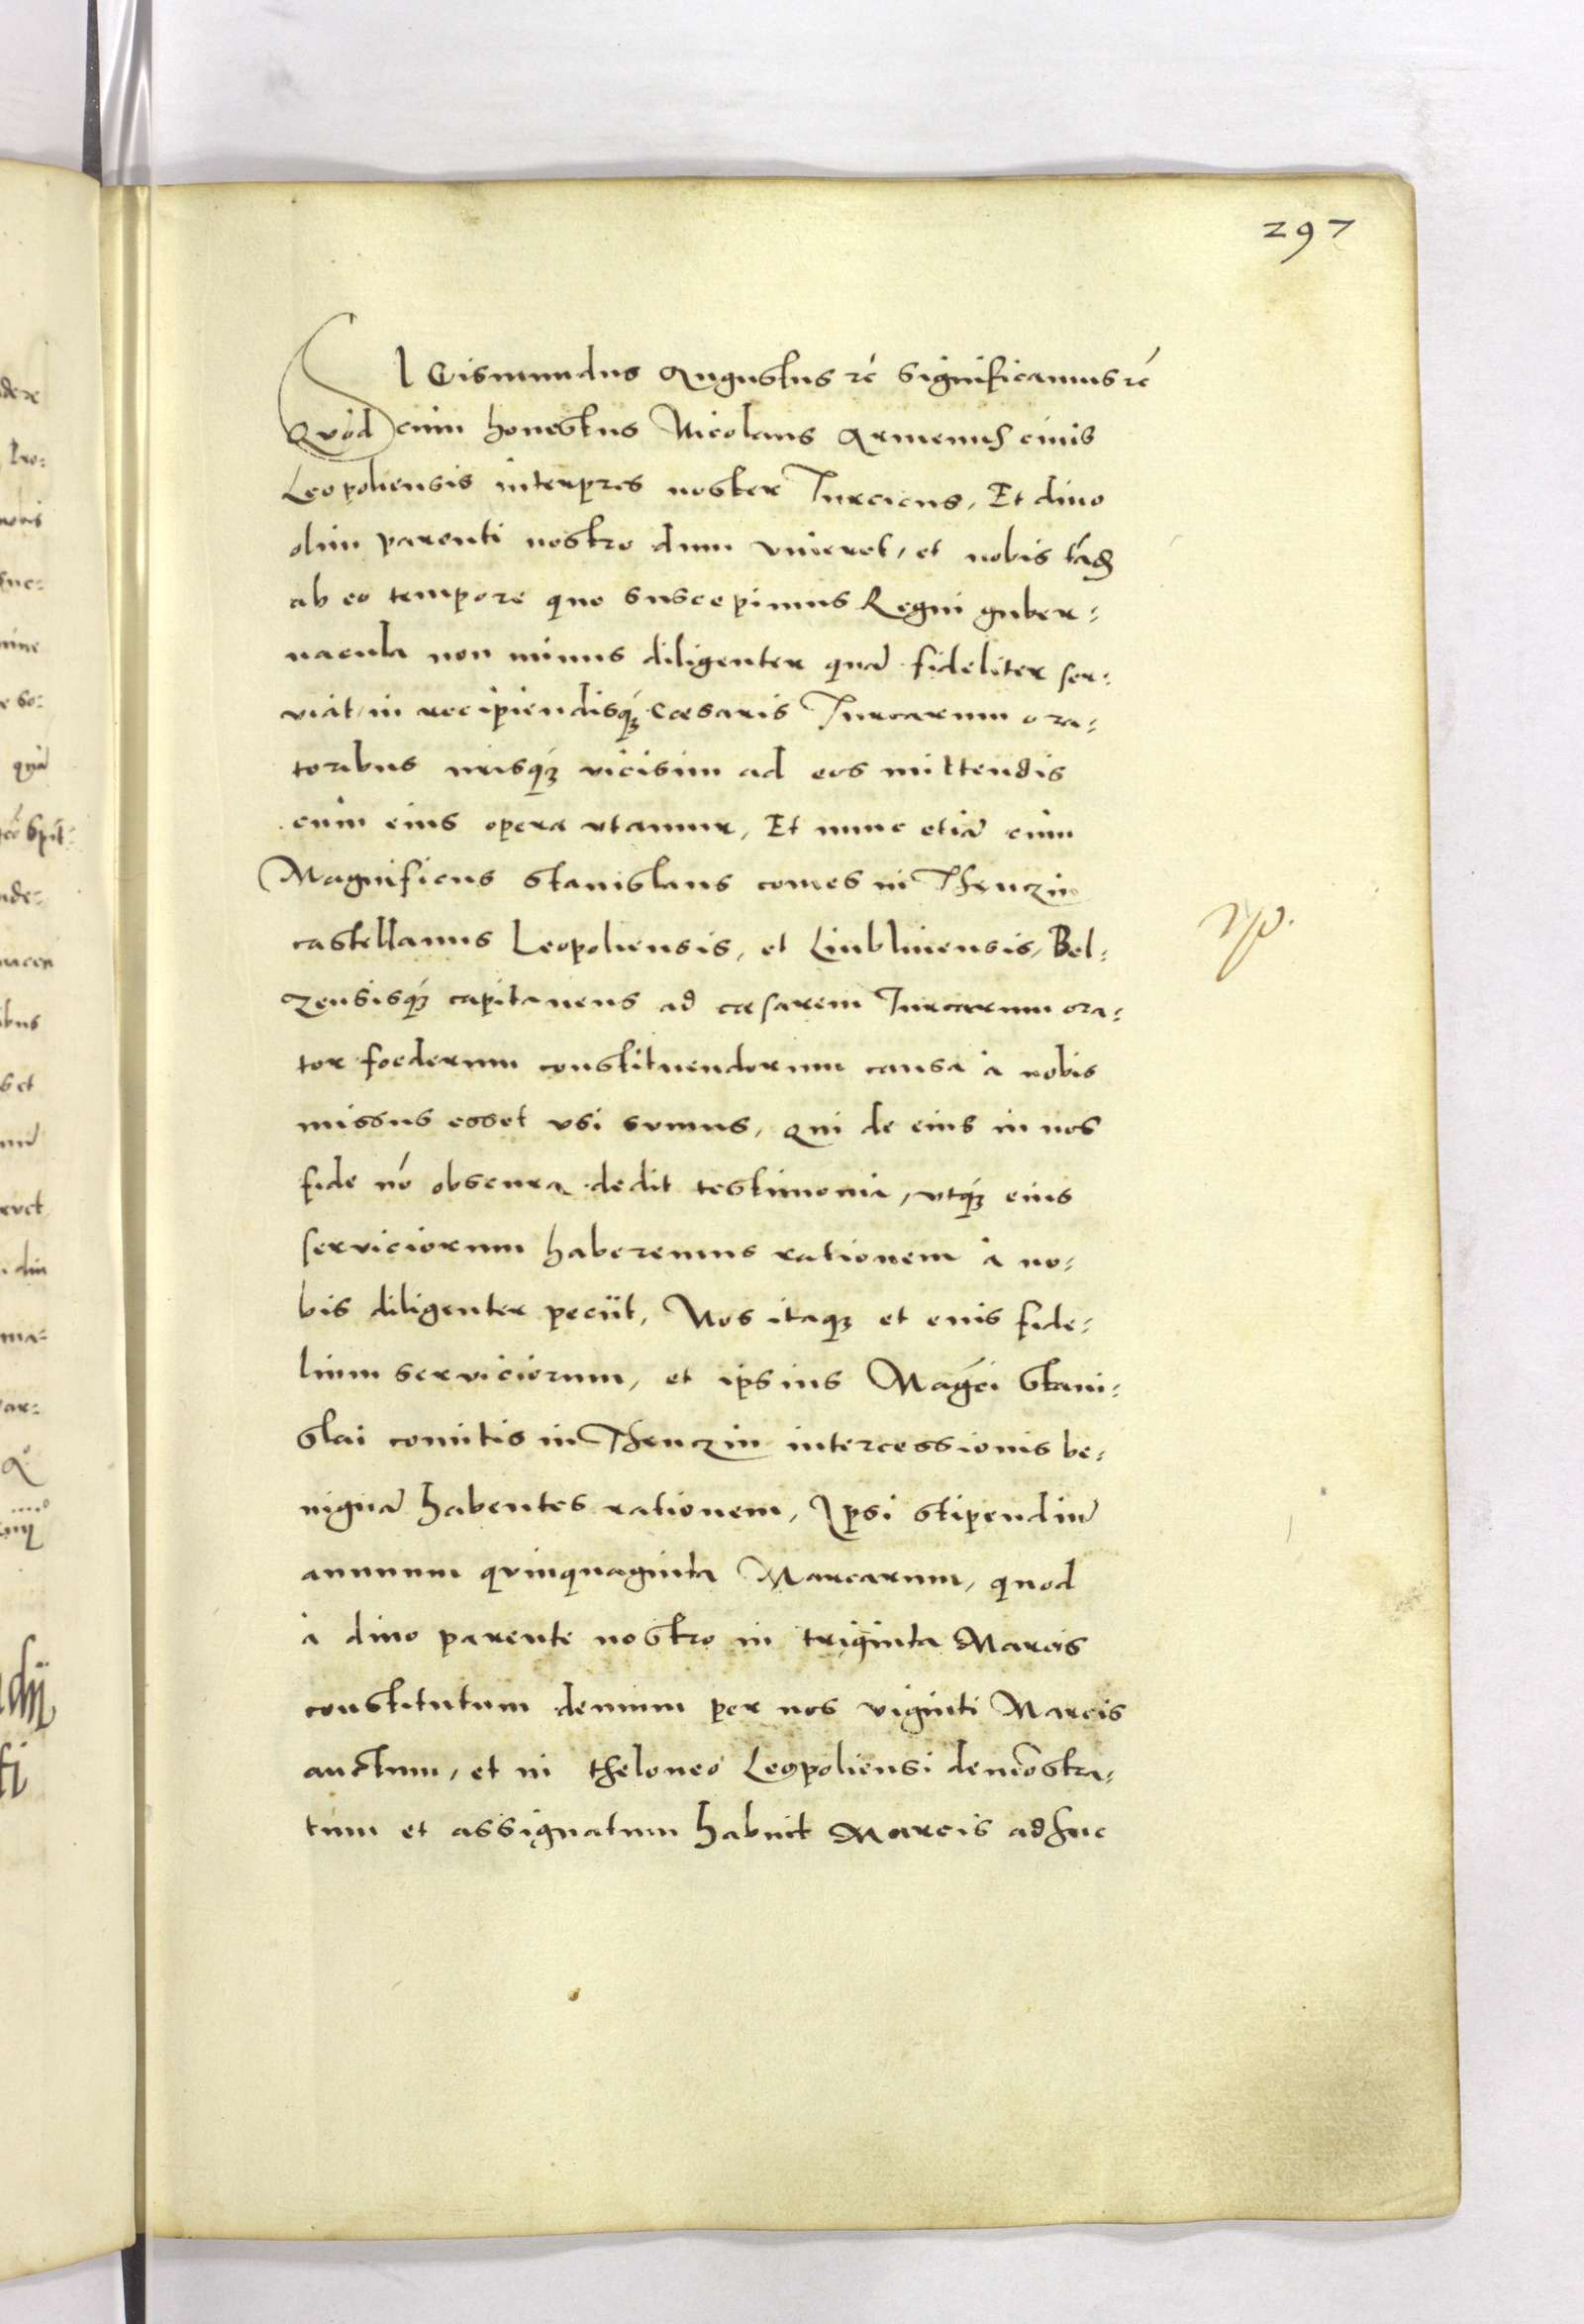 297
SIGismundus Augustus rc̃ significamus rc̃
Quòd cum honestus Nicolaus Armenus ciuis
Leopoliensis interpres noster Turcicus, Et diuo
olim parenti nostro dum viueret, et nobis
ab eo tempore quo suscepimus Regni guber:
nacula non minus diligenter quã fideliter ser:
uiat, in recipiendisq́ꝫ Cæsaris Turcarum ora:
toribus nr̃isq́ꝫ vicisim ad eos mittendis
cum eius opera vtamur, Et nunc etiã cum
Magnificus Stanislaus comes in Thenczin
castellanus Leopoliensis, et Liublinensis, Bel:
zensisq́ꝫ capitaneus ad cæsarem Turcarum ora:
tor foederum constituendorum causa à nobis
missus esset vsi sumus, Qui de eius in nos
fide nõ obscura dedit testimonia, vtq́ꝫ eius
seruiciorum haberemus rationem à no:
bis diligenter peciit, Nos itaqꝫ et euis fide:
lium seruiciorum, et ipsius Mag̃ci Stani:
slai comitis in Thenczin intercessionis be:
nignã habentes rationem, Ipsi stipendiũ
annuum quinquaginta Marcarum, quod
à diuo parente nostro in triginta Marcis
constitutum demum per nos viginti Marcis
auctum, et in theloneo Leopoliensi demõstra:
tum et assignatum habuit Marcis adhuc